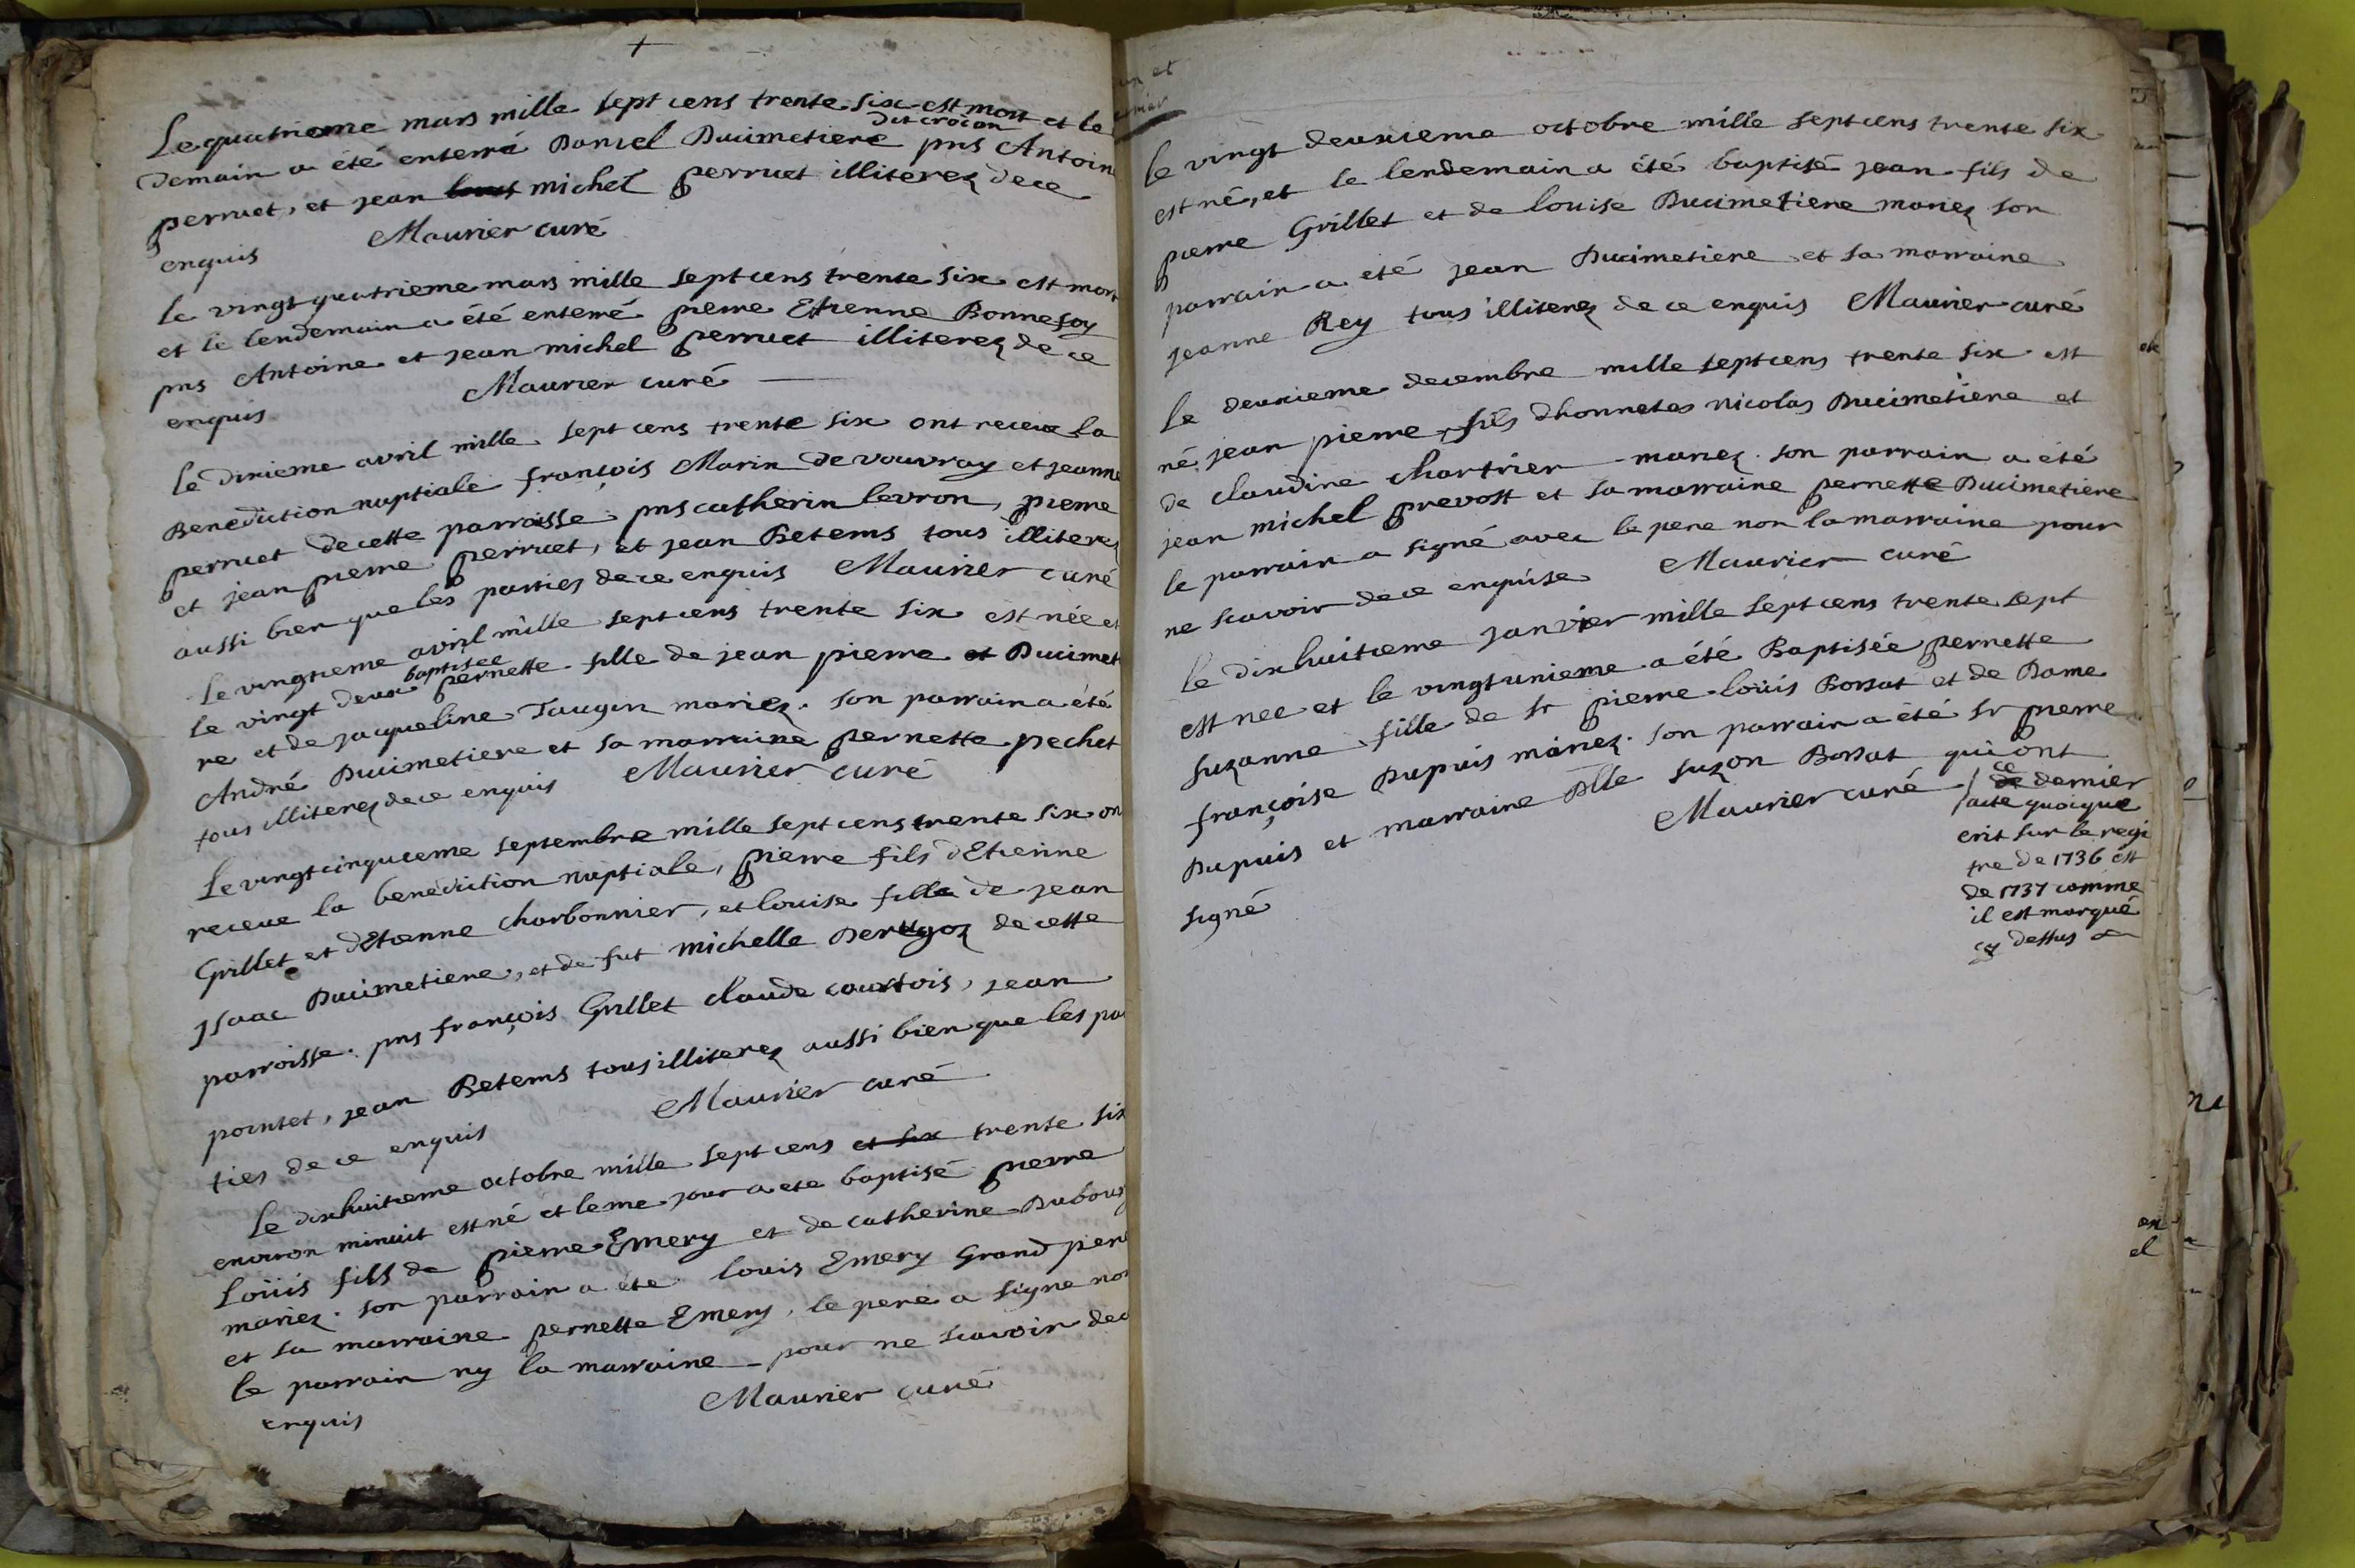 Le quatrieme mars mille sept cens trente six est mort et le
dit croian
demain a été enterré Daniel Ducimetiere pns Antoin
perruet, et jean michel perruet illiterez de ce
enquis Maurier curé
le vingt quatrieme mars mille sept cens trente six est mort
et le lendemain a été enterré pierre Etienne Bonnefoy
pns Antoine et jean michel perruet illiterez de ce
enquis Maurier curé
le dixieme avril mille sept cens trente six ont receu la
Benediction nuptiale françois Marin de vouvray et jeanne
perruet de cette parroisse pns catherin levron, pierre
et jean pierre perruet, et jean Betems tous illiterez
aussi bien que les parties de ce enquis Maurier curé
le vingtieme avril mille sept cens trente six est née et
baptisée
le vingt deux pernette fille de jean pierre et Ducimet
re et de jacqueline Taugin mariez. son parrain a été
André Ducimetiere et sa marraine pernette pechet
tous illiterez de ce enquis Maurier curé
Le vingtcinquieme septembre mille sept cens trente six on
receue la benediction nuptiale, pierre fils d'Etienne
Grillet et d'Etienne charbonnier, et louise fille de jean
Isaac Ducimetiere, et de fut michelle Derugoz de cette
parroisse. pns françois Grillet claude courtois, jean
pointet, jean Betems tous illiterez aussi bien que les par
ties de ce enquis Maurier curé
Le dixhuitieme octobre mille sept cens et six trente six
environ minuit est né et le me jour a été baptisé pierre
Loüis fils de pierre Emery et de catherine Dubourg
mariez. son parrain a été louis Emery Grand pere
et sa marraine pernette Emery, le pere a signe non
le parrain ny la marraine pour ne scavoir de c
enquis Maurier curé
le vingt deuxieme octobre mille sept cens trente six
est né, et le lendemain a été baptisé jean fils de
pierre Grillet et de louise Ducimetiere mariez son
parrain a été jean Ducimetiere et sa marraine
jeanne Rey tous illiterez de ce enquis Maurier curé
le deuxieme decembre mille sept cens trente six est
né jean pierre fils dhonnetes nicolas Ducimetiere et
de claudine chartrier mariez. son parrain a été
jean michel prevost et sa marraine pernette Ducimetiere
le parrain a signé avec le pere non la marraine pour
ne scavoir de ce enquise Maurier curé
le dixhuitieme janvier mille sept cens trente sept
est nee et le vingtunieme a été Baptisée pernette
suzanne fille de sr pierre loüis Bossat et de Dame
françoise Dupuis mariez. son parrain a été sr pierre
Dupuis et marraine Dlle suzon Bossat qui ont
signé Maurier curé
ce
de dernier
acte quoique
crit sur le regi
tre de 1736 est
de 1737 comme
il est marqué
cy dessus